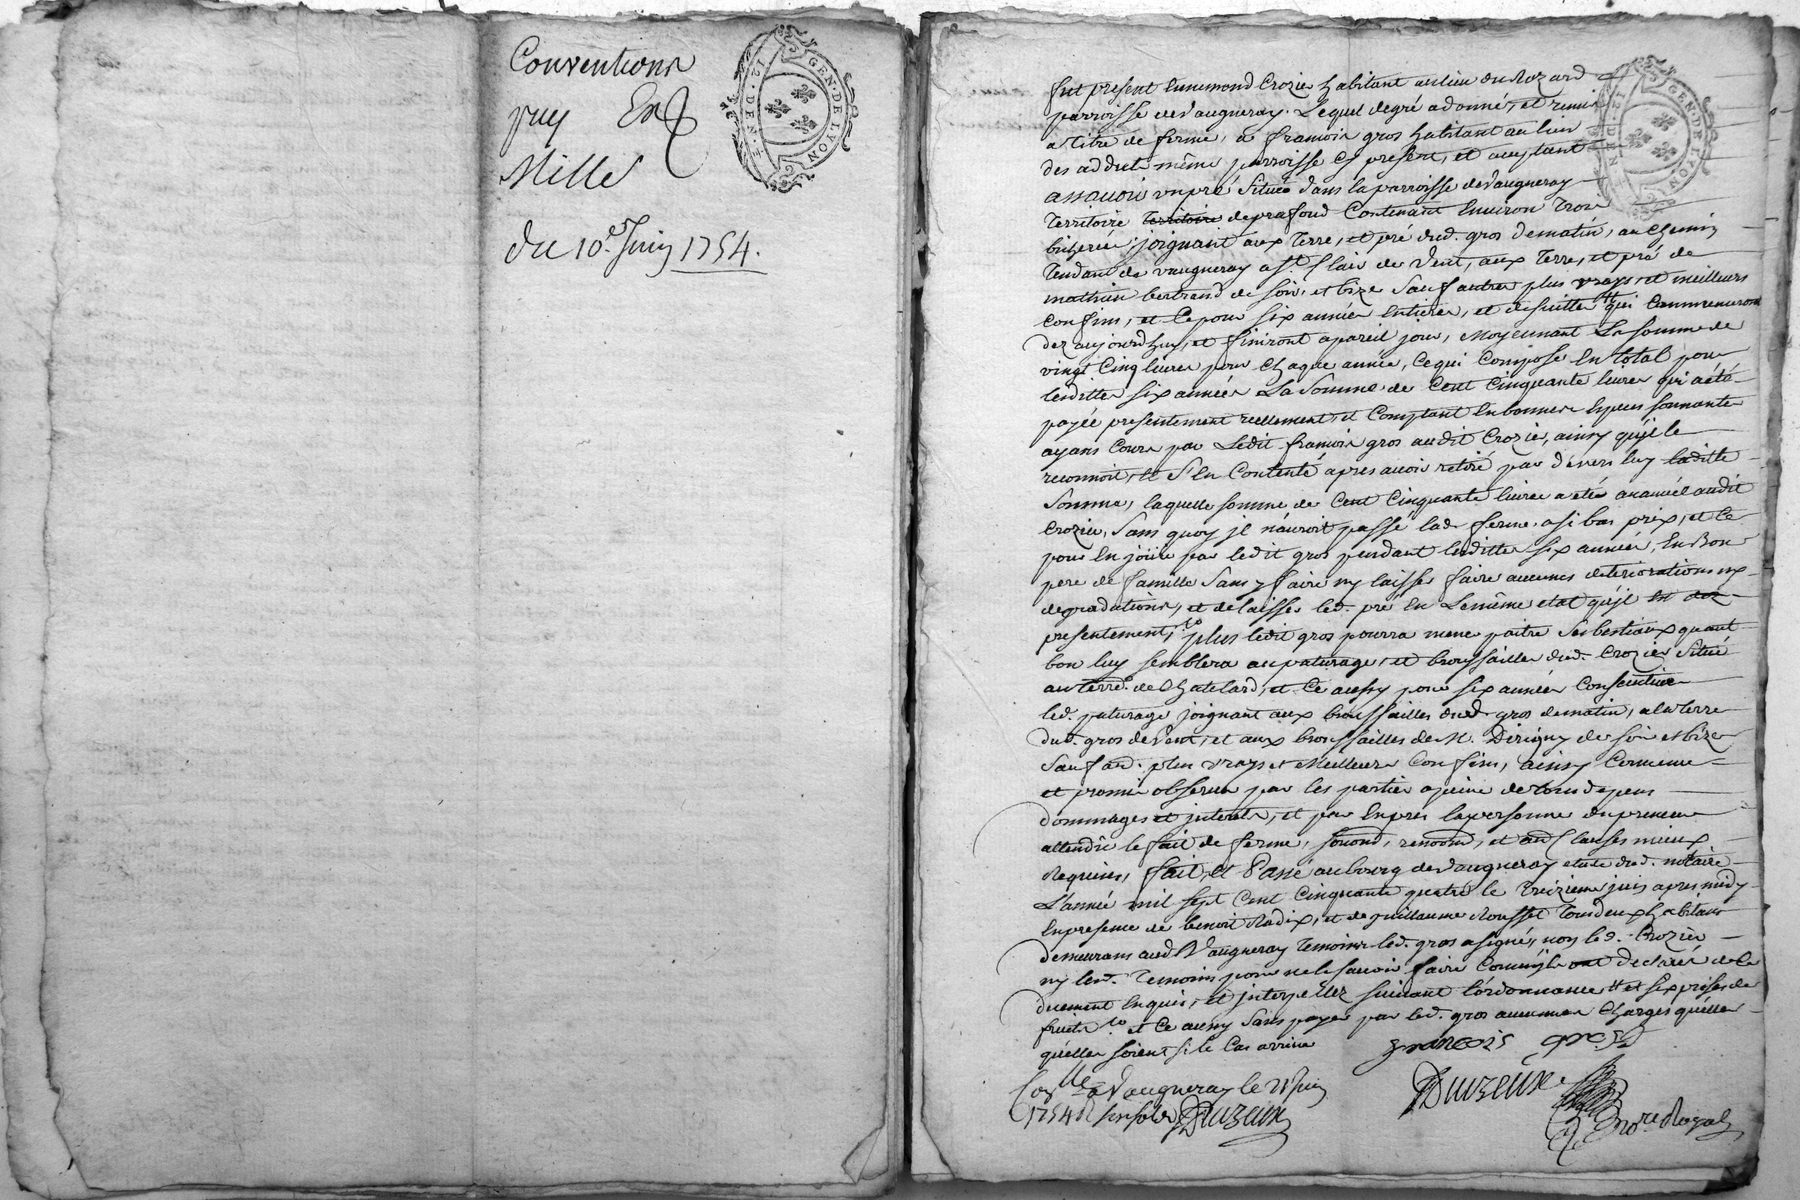 Conventions
puy Ex
Mille
du 10e Juin 1754.
GEN. DE LYON
12. DEN. 4
fut present Ennemond Crozier habitant au lieu du Rozard
parroisse de Vaugneray. Lequel degré a donné, et remis
a titre de ferme, a francois gros habitant au lieu
des adduts même parroisse cy present, et acceptant
assavoir un pré situé dans la parroisse de Vaugneray
territoire territoire de prafond Contenant Environ trois
bicherées joignant aux terre, et pré dud. gros de matin, au chemin
tendant de vaugneray a St. Clair de vent, aux terre, et pré de
mathieu bertrand de soir, et bize sauf autres plus vrays, et meilleurs
confins, et Ce pour six années Entieres, et desuitte qui Commenceront
dez aujourdhuy, et finiront a pareil jour, Moyennant La somme de
vingt Cinq livres pour Chaque année, Ce qui Compose En total pour
lesdittes six années La Somme de Cent Cinquante livres qui a été
payée presentement reellement, et Comptant En bonnes Especes sonnantes
ayans Cours par Ledit francois gros audit Crozier, ainsy qu'il le
reconnoit, et s'en Contenté apres avoir retiré par devers luy laditte
Somme, laquelle somme de Cent Cinquante livres a été avancé audit
Crozier, sans quoy il n'auroit passé lad. ferme a si bas prix, et Ce
pour En jöuir par ledit gros pendant lesdittes six années, En Bon
pere de famille Sans y faire ny laisser faire aucunes deteriorations ny
degradations, et delaisser led. pré En Le même etat qu'il est dez
presentement, plus ledit gros pourra mener paitre Ses bestiaux quant
bon luy semblera au paturage, et broussailles dud. Crozier Situé
au terre. de Chatelard, et Ce aussy pour six années Consecutives
led. paturage joignant aux broussailles dud. gros de matin, a la terre
dud. gros de Vent, et aux broussailles de M. Derigny de soir et bize
Sauf au. plus vrays et Meilleurs Confins, ainsy Convenu
et promis observer par les parties a peine de tous depens
dommages et interets, et par Expres la personne du preneur
attendu le fait de ferme, renond, et au. Clauses mieux
Requises, fait, et Passé au bourg de Vaugneray etude dud. notaire
L'année mil sept Cent Cinquante quatre le treizieme juin apres midy
En presence de benoit Radix, et de guillaume Rousset tous deux habitans
demeurans aud. Vaugneray temoins led. gros a signé, non led. Crozier
ny lesd. temoins pour ne le savoir faire Comm'ils ont declaré de Ce
duement Enquis, et interpellez suivant l'ordonnance et six prises de
fruits et Ce aussy Sans payer par led. gros aucunes Charges qu'elles
qu'elles soient si le Cas arrive
francois gros
Con.lle a Vaugneray le 21 Juin
1754
Duzeux
Duzeux
Nore. Royal